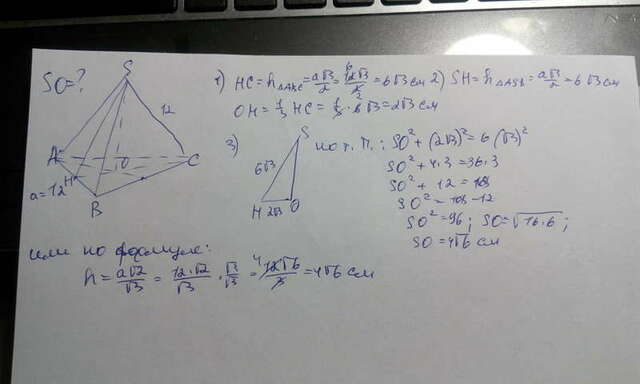 SO=?
S
12
A
O
C
H
a=12
B
1) HC = h△ABC = a√3/2 = 12√3/2 = 6√3 см
OH = 1/3 HC = 1/3 · 6√3 = 2√3 см
2) SH = h△ASB = a√3/2 = 6√3 см
3)
S
6√3
H 2√3 O
по т. П.: SO² + (2√3)² = 6(√3)²
SO² + 4·3 = 36·3
SO² + 12 = 108
SO² = 108 - 12
SO² = 96; SO = √16·6;
SO = 4√6 см
или по формуле:
h = a√2/√3 = 12·√2/√3 · √3/√3 = 12√6/3 = 4√6 см